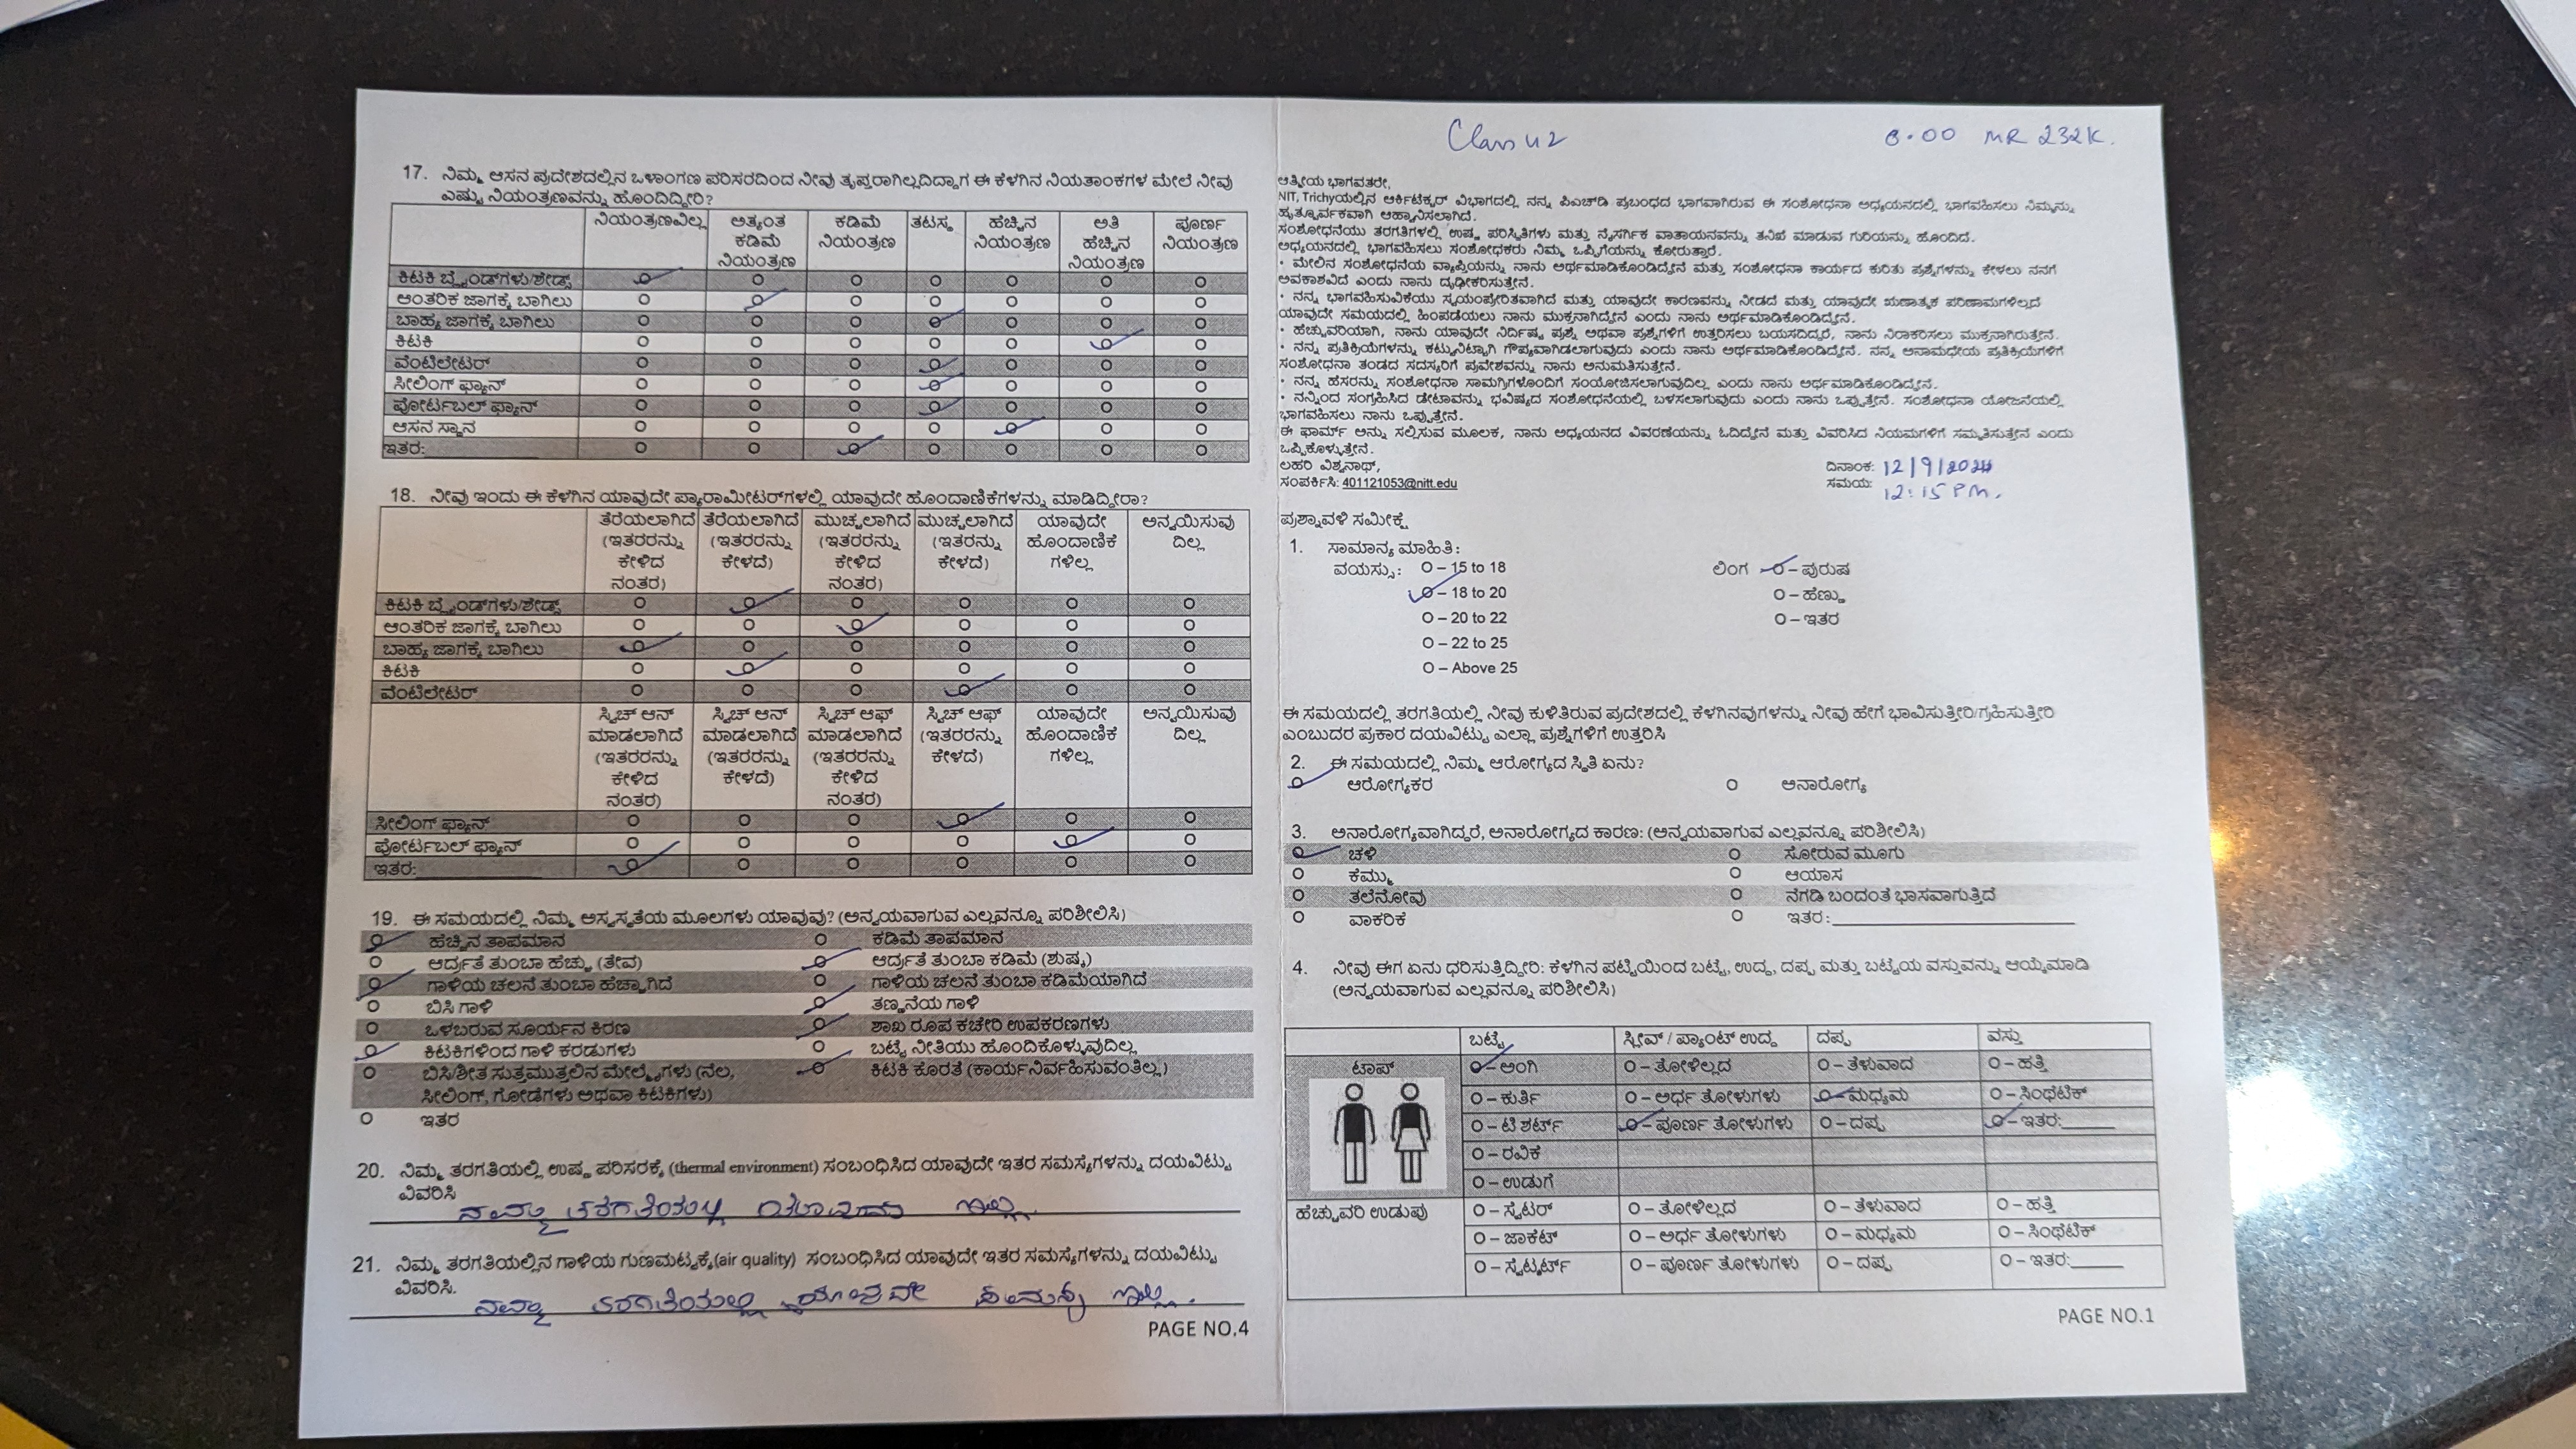 17. ನಿಮ್ಮ ಆಸನ ಪ್ರದೇಶದಲ್ಲಿನ ಒಳಾಂಗಣ ಪರಿಸರದಿಂದ ನೀವು ತೃಪ್ತರಾಗಿಲ್ಲದಿದ್ದಾಗ ಈ ಕೆಳಗಿನ ನಿಯತಾಂಕಗಳ ಮೇಲೆ ನೀವು
ಎಷ್ಟು ನಿಯಂತ್ರಣವನ್ನು ಹೊಂದಿದ್ದೀರಿ?
ನಿಯಂತ್ರಣವಿಲ್ಲ ಅತ್ಯಂತ ಕಡಿಮೆ ನಿಯಂತ್ರಣ ಕಡಿಮೆ ನಿಯಂತ್ರಣ ತಟಸ್ಥ ಹೆಚ್ಚಿನ ನಿಯಂತ್ರಣ ಅತಿ ಹೆಚ್ಚಿನ ನಿಯಂತ್ರಣ ಪೂರ್ಣ ನಿಯಂತ್ರಣ
ಕಿಟಕಿ ಬ್ಲೈಂಡ್‌ಗಳು/ಶೇಡ್ಸ್
ಆಂತರಿಕ ಜಾಗಕ್ಕೆ ಬಾಗಿಲು
ಬಾಹ್ಯ ಜಾಗಕ್ಕೆ ಬಾಗಿಲು
ಕಿಟಕಿ
ವೆಂಟಿಲೇಟರ್
ಸೀಲಿಂಗ್ ಫ್ಯಾನ್
ಪೋರ್ಟಬಲ್ ಫ್ಯಾನ್
ಆಸನ ಸ್ಥಾನ
ಇತರ:
18. ನೀವು ಇಂದು ಈ ಕೆಳಗಿನ ಯಾವುದೇ ಪ್ಯಾರಾಮೀಟರ್‌ಗಳಲ್ಲಿ ಯಾವುದೇ ಹೊಂದಾಣಿಕೆಗಳನ್ನು ಮಾಡಿದ್ದೀರಾ?
ತೆರೆಯಲಾಗಿದೆ (ಇತರರನ್ನು ಕೇಳಿದ ನಂತರ) ತೆರೆಯಲಾಗಿದೆ (ಇತರರನ್ನು ಕೇಳದೆ) ಮುಚ್ಚಲಾಗಿದೆ (ಇತರರನ್ನು ಕೇಳಿದ ನಂತರ) ಮುಚ್ಚಲಾಗಿದೆ (ಇತರರನ್ನು ಕೇಳದೆ) ಯಾವುದೇ ಹೊಂದಾಣಿಕೆ ಗಳಿಲ್ಲ ಅನ್ವಯಿಸುವು ದಿಲ್ಲ
ಕಿಟಕಿ ಬ್ಲೈಂಡ್‌ಗಳು/ಶೇಡ್ಸ್
ಆಂತರಿಕ ಜಾಗಕ್ಕೆ ಬಾಗಿಲು
ಬಾಹ್ಯ ಜಾಗಕ್ಕೆ ಬಾಗಿಲು
ಕಿಟಕಿ
ವೆಂಟಿಲೇಟರ್
ಸ್ವಿಚ್ ಆನ್ ಮಾಡಲಾಗಿದೆ (ಇತರರನ್ನು ಕೇಳಿದ ನಂತರ) ಸ್ವಿಚ್ ಆನ್ ಮಾಡಲಾಗಿದೆ (ಇತರರನ್ನು ಕೇಳದೆ) ಸ್ವಿಚ್ ಆಫ್ ಮಾಡಲಾಗಿದೆ (ಇತರರನ್ನು ಕೇಳಿದ ನಂತರ) ಸ್ವಿಚ್ ಆಫ್ (ಇತರರನ್ನು ಕೇಳದೆ) ಯಾವುದೇ ಹೊಂದಾಣಿಕೆ ಗಳಿಲ್ಲ ಅನ್ವಯಿಸುವು ದಿಲ್ಲ
ಸೀಲಿಂಗ್ ಫ್ಯಾನ್
ಪೋರ್ಟಬಲ್ ಫ್ಯಾನ್
ಇತರ:
19. ಈ ಸಮಯದಲ್ಲಿ ನಿಮ್ಮ ಅಸ್ವಸ್ಥತೆಯ ಮೂಲಗಳು ಯಾವುವು? (ಅನ್ವಯವಾಗುವ ಎಲ್ಲವನ್ನೂ ಪರಿಶೀಲಿಸಿ)
ಹೆಚ್ಚಿನ ತಾಪಮಾನ ಕಡಿಮೆ ತಾಪಮಾನ
ಆರ್ದ್ರತೆ ತುಂಬಾ ಹೆಚ್ಚು (ತೇವ) ಆರ್ದ್ರತೆ ತುಂಬಾ ಕಡಿಮೆ (ಶುಷ್ಕ)
ಗಾಳಿಯ ಚಲನೆ ತುಂಬಾ ಹೆಚ್ಚಾಗಿದೆ ಗಾಳಿಯ ಚಲನೆ ತುಂಬಾ ಕಡಿಮೆಯಾಗಿದೆ
ಬಿಸಿ ಗಾಳಿ ತಣ್ಣನೆಯ ಗಾಳಿ
ಒಳಬರುವ ಸೂರ್ಯನ ಕಿರಣ ಶಾಖ ರೂಪ ಕಚೇರಿ ಉಪಕರಣಗಳು
ಕಿಟಕಿಗಳಿಂದ ಗಾಳಿ ಕರಡುಗಳು ಬಟ್ಟೆ ನೀತಿಯು ಹೊಂದಿಕೊಳ್ಳುವುದಿಲ್ಲ
ಬಿಸಿ/ಶೀತ ಸುತ್ತಮುತ್ತಲಿನ ಮೇಲ್ಮೈಗಳು (ನೆಲ, ಕಿಟಕಿ ಕೊರತೆ (ಕಾರ್ಯನಿರ್ವಹಿಸುವಂತಿಲ್ಲ)
ಸೀಲಿಂಗ್, ಗೋಡೆಗಳು ಅಥವಾ ಕಿಟಕಿಗಳು)
ಇತರ
20. ನಿಮ್ಮ ತರಗತಿಯಲ್ಲಿ ಉಷ್ಣ ಪರಿಸರಕ್ಕೆ (thermal environment) ಸಂಬಂಧಿಸಿದ ಯಾವುದೇ ಇತರ ಸಮಸ್ಯೆಗಳನ್ನು ದಯವಿಟ್ಟು
ವಿವರಿಸಿ
ನಮ್ಮ ತರಗತಿಯಲ್ಲಿ ಇಲ್ಲ.
21. ನಿಮ್ಮ ತರಗತಿಯಲ್ಲಿನ ಗಾಳಿಯ ಗುಣಮಟ್ಟಕ್ಕೆ(air quality) ಸಂಬಂಧಿಸಿದ ಯಾವುದೇ ಇತರ ಸಮಸ್ಯೆಗಳನ್ನು ದಯವಿಟ್ಟು
ವಿವರಿಸಿ.
ನಮ್ಮ ತರಗತಿಯಲ್ಲಿ ಯಾವುದೇ ಸಮಸ್ಯೆ ಇಲ್ಲ.
PAGE NO.4
Class 42 8.00 MR 232K.
ಆತ್ಮೀಯ ಭಾಗವತರೇ,
NIT, Trichyಯಲ್ಲಿನ ಆರ್ಕಿಟೆಕ್ಚರ್ ವಿಭಾಗದಲ್ಲಿ ನನ್ನ ಪಿಎಚ್‌ಡಿ ಪ್ರಬಂಧದ ಭಾಗವಾಗಿರುವ ಈ ಸಂಶೋಧನಾ ಅಧ್ಯಯನದಲ್ಲಿ ಭಾಗವಹಿಸಲು ನಿಮ್ಮನ್ನು
ಹೃತ್ಪೂರ್ವಕವಾಗಿ ಆಹ್ವಾನಿಸಲಾಗಿದೆ.
ಸಂಶೋಧನೆಯು ತರಗತಿಗಳಲ್ಲಿ ಉಷ್ಣ ಪರಿಸ್ಥಿತಿಗಳು ಮತ್ತು ನೈಸರ್ಗಿಕ ವಾತಾಯನವನ್ನು ತನಿಖೆ ಮಾಡುವ ಗುರಿಯನ್ನು ಹೊಂದಿದೆ.
ಅಧ್ಯಯನದಲ್ಲಿ ಭಾಗವಹಿಸಲು ಸಂಶೋಧಕರು ನಿಮ್ಮ ಒಪ್ಪಿಗೆಯನ್ನು ಕೋರುತ್ತಾರೆ.
• ಮೇಲಿನ ಸಂಶೋಧನೆಯ ವ್ಯಾಪ್ತಿಯನ್ನು ನಾನು ಅರ್ಥಮಾಡಿಕೊಂಡಿದ್ದೇನೆ ಮತ್ತು ಸಂಶೋಧನಾ ಕಾರ್ಯದ ಕುರಿತು ಪ್ರಶ್ನೆಗಳನ್ನು ಕೇಳಲು ನನಗೆ
ಅವಕಾಶವಿದೆ ಎಂದು ನಾನು ದೃಢೀಕರಿಸುತ್ತೇನೆ.
• ನನ್ನ ಭಾಗವಹಿಸುವಿಕೆಯು ಸ್ವಯಂಪ್ರೇರಿತವಾಗಿದೆ ಮತ್ತು ಯಾವುದೇ ಕಾರಣವನ್ನು ನೀಡದೆ ಮತ್ತು ಯಾವುದೇ ಋಣಾತ್ಮಕ ಪರಿಣಾಮಗಳಿಲ್ಲದೆ
ಯಾವುದೇ ಸಮಯದಲ್ಲಿ ಹಿಂಪಡೆಯಲು ನಾನು ಮುಕ್ತನಾಗಿದ್ದೇನೆ ಎಂದು ನಾನು ಅರ್ಥಮಾಡಿಕೊಂಡಿದ್ದೇನೆ.
• ಹೆಚ್ಚುವರಿಯಾಗಿ, ನಾನು ಯಾವುದೇ ನಿರ್ದಿಷ್ಟ ಪ್ರಶ್ನೆ ಅಥವಾ ಪ್ರಶ್ನೆಗಳಿಗೆ ಉತ್ತರಿಸಲು ಬಯಸದಿದ್ದರೆ, ನಾನು ನಿರಾಕರಿಸಲು ಮುಕ್ತನಾಗಿರುತ್ತೇನೆ.
• ನನ್ನ ಪ್ರತಿಕ್ರಿಯೆಗಳನ್ನು ಕಟ್ಟುನಿಟ್ಟಾಗಿ ಗೌಪ್ಯವಾಗಿಡಲಾಗುವುದು ಎಂದು ನಾನು ಅರ್ಥಮಾಡಿಕೊಂಡಿದ್ದೇನೆ. ನನ್ನ ಅನಾಮಧೇಯ ಪ್ರತಿಕ್ರಿಯೆಗಳಿಗೆ
ಸಂಶೋಧನಾ ತಂಡದ ಸದಸ್ಯರಿಗೆ ಪ್ರವೇಶವನ್ನು ನಾನು ಅನುಮತಿಸುತ್ತೇನೆ.
• ನನ್ನ ಹೆಸರನ್ನು ಸಂಶೋಧನಾ ಸಾಮಗ್ರಿಗಳೊಂದಿಗೆ ಸಂಯೋಜಿಸಲಾಗುವುದಿಲ್ಲ ಎಂದು ನಾನು ಅರ್ಥಮಾಡಿಕೊಂಡಿದ್ದೇನೆ.
• ನನ್ನಿಂದ ಸಂಗ್ರಹಿಸಿದ ಡೇಟಾವನ್ನು ಭವಿಷ್ಯದ ಸಂಶೋಧನೆಯಲ್ಲಿ ಬಳಸಲಾಗುವುದು ಎಂದು ನಾನು ಒಪ್ಪುತ್ತೇನೆ. ಸಂಶೋಧನಾ ಯೋಜನೆಯಲ್ಲಿ
ಭಾಗವಹಿಸಲು ನಾನು ಒಪ್ಪುತ್ತೇನೆ.
ಈ ಫಾರ್ಮ್ ಅನ್ನು ಸಲ್ಲಿಸುವ ಮೂಲಕ, ನಾನು ಅಧ್ಯಯನದ ವಿವರಣೆಯನ್ನು ಓದಿದ್ದೇನೆ ಮತ್ತು ವಿವರಿಸಿದ ನಿಯಮಗಳಿಗೆ ಸಮ್ಮತಿಸುತ್ತೇನೆ ಎಂದು
ಒಪ್ಪಿಕೊಳ್ಳುತ್ತೇನೆ.
ಲಹರಿ ವಿಶ್ವನಾಥ್,
ಸಂಪರ್ಕಿಸಿ: 401121053@nitt.edu
ದಿನಾಂಕ: 12/9/2024
ಸಮಯ: 12:15 PM.
ಪ್ರಶ್ನಾವಳಿ ಸಮೀಕ್ಷೆ
1. ಸಾಮಾನ್ಯ ಮಾಹಿತಿ:
ವಯಸ್ಸು: O – 15 to 18 ಲಿಂಗ O – ಪುರುಷ
O – 18 to 20 O – ಹೆಣ್ಣು
O – 20 to 22 O – ಇತರ
O – 22 to 25
O – Above 25
ಈ ಸಮಯದಲ್ಲಿ ತರಗತಿಯಲ್ಲಿ ನೀವು ಕುಳಿತಿರುವ ಪ್ರದೇಶದಲ್ಲಿ ಕೆಳಗಿನವುಗಳನ್ನು ನೀವು ಹೇಗೆ ಭಾವಿಸುತ್ತೀರಿ/ಗ್ರಹಿಸುತ್ತೀರಿ
ಎಂಬುದರ ಪ್ರಕಾರ ದಯವಿಟ್ಟು ಎಲ್ಲಾ ಪ್ರಶ್ನೆಗಳಿಗೆ ಉತ್ತರಿಸಿ
2. ಈ ಸಮಯದಲ್ಲಿ ನಿಮ್ಮ ಆರೋಗ್ಯದ ಸ್ಥಿತಿ ಏನು?
ಆರೋಗ್ಯಕರ ಅನಾರೋಗ್ಯ
3. ಅನಾರೋಗ್ಯವಾಗಿದ್ದರೆ, ಅನಾರೋಗ್ಯದ ಕಾರಣ: (ಅನ್ವಯವಾಗುವ ಎಲ್ಲವನ್ನೂ ಪರಿಶೀಲಿಸಿ)
ಚಳಿ ಸೋರುವ ಮೂಗು
ಕೆಮ್ಮು ಆಯಾಸ
ತಲೆನೋವು ನೆಗಡಿ ಬಂದಂತೆ ಭಾಸವಾಗುತ್ತಿದೆ
ವಾಕರಿಕೆ ಇತರ:
4. ನೀವು ಈಗ ಏನು ಧರಿಸುತ್ತಿದ್ದೀರಿ: ಕೆಳಗಿನ ಪಟ್ಟಿಯಿಂದ ಬಟ್ಟೆ, ಉದ್ದ, ದಪ್ಪ ಮತ್ತು ಬಟ್ಟೆಯ ವಸ್ತುವನ್ನು ಆಯ್ಕೆಮಾಡಿ
(ಅನ್ವಯವಾಗುವ ಎಲ್ಲವನ್ನೂ ಪರಿಶೀಲಿಸಿ)
ಬಟ್ಟೆ ಸ್ಲೀವ್ / ಪ್ಯಾಂಟ್ ಉದ್ದ ದಪ್ಪ ವಸ್ತು
ಟಾಪ್ O – ಅಂಗಿ O – ತೋಳಿಲ್ಲದ O – ತೆಳುವಾದ O – ಹತ್ತಿ
O – ಕುರ್ತಿ O – ಅರ್ಧ ತೋಳುಗಳು O – ಮಧ್ಯಮ O – ಸಿಂಥಟಿಕ್
O – ಟಿ ಶರ್ಟ್ O – ಪೂರ್ಣ ತೋಳುಗಳು O – ದಪ್ಪ O – ಇತರ:
O – ರವಿಕೆ
O – ಉಡುಗೆ
ಹೆಚ್ಚುವರಿ ಉಡುಪು O – ಸ್ವೆಟರ್ O – ತೋಳಿಲ್ಲದ O – ತೆಳುವಾದ O – ಹತ್ತಿ
O – ಜಾಕೆಟ್ O – ಅರ್ಧ ತೋಳುಗಳು O – ಮಧ್ಯಮ O – ಸಿಂಥಟಿಕ್
O – ಸ್ವೆಟ್ಶರ್ಟ್ O – ಪೂರ್ಣ ತೋಳುಗಳು O – ದಪ್ಪ O – ಇತರ:
PAGE NO.1